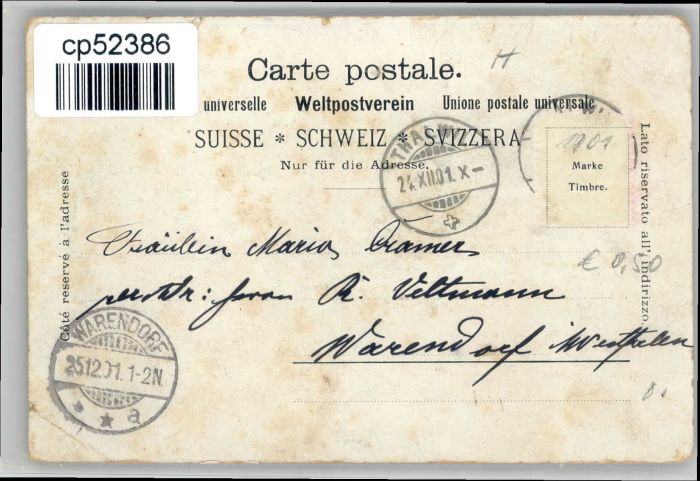 cp52386
Carte postale.
universelle Weltpostverein Unione postale universale
SUISSE * SCHWEIZ * SVIZZERA
Nur für die Adresse.
1901
Marke
Timbre.
Côté reservé à l'adresse
Lato riservato all' indirizzo
24.XII.01.X-
Fräulein Maria Cramer
€ 0,50
R. Veltmann
Warendorf Westfalen
WARENDORF
25.12.01.1-2N.
* * a